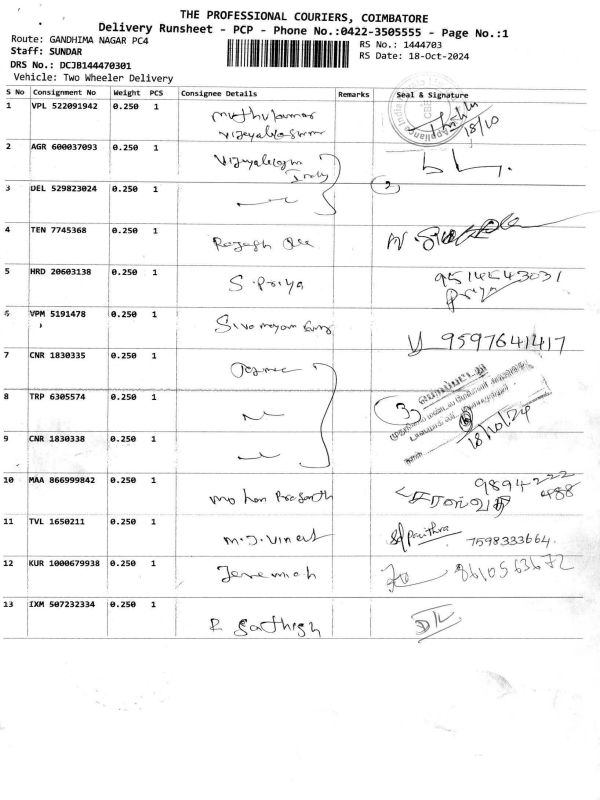 THE PROFESSIONAL COURIERS, COIMBATORE
Delivery Runsheet - PCP - Phone No.:0422-3505555 - Page No.:1
Route: GANDHIMA NAGAR PC4
RS No.: 1444703
Staff: SUNDAR
RS Date: 18-Oct-2024
DRS No.: DCJB144470301
Vehicle: Two Wheeler Delivery
S No Consignment No Weight PCS Consignee Details Remarks Seal & Signature
1 VPL 522091942 0.250 1 Muthukumar
18/10
2 AGR 600037093 0.250 1
3 DEL 529823024 0.250 1
4 TEN 7745368 0.250 1 Rajesh
5 HRD 20603138 0.250 1 S. Priya 9514543031
Priya
6 VPM 5191478 0.250 1 9597641417
7 CNR 1830335 0.250 1
8 TRP 6305574 0.250 1 3
18/10/24
9 CNR 1830338 0.250 1
10 MAA 866999842 0.250 1 Mohan Prasanth 9894222
488
சரஸ்வதி
11 TVL 1650211 0.250 1 M.J. Vinect Pavithra 7598333664
12 KUR 1000679938 0.250 1 Jeremiah 8610563672
13 IXM 507232334 0.250 1 R Sathish